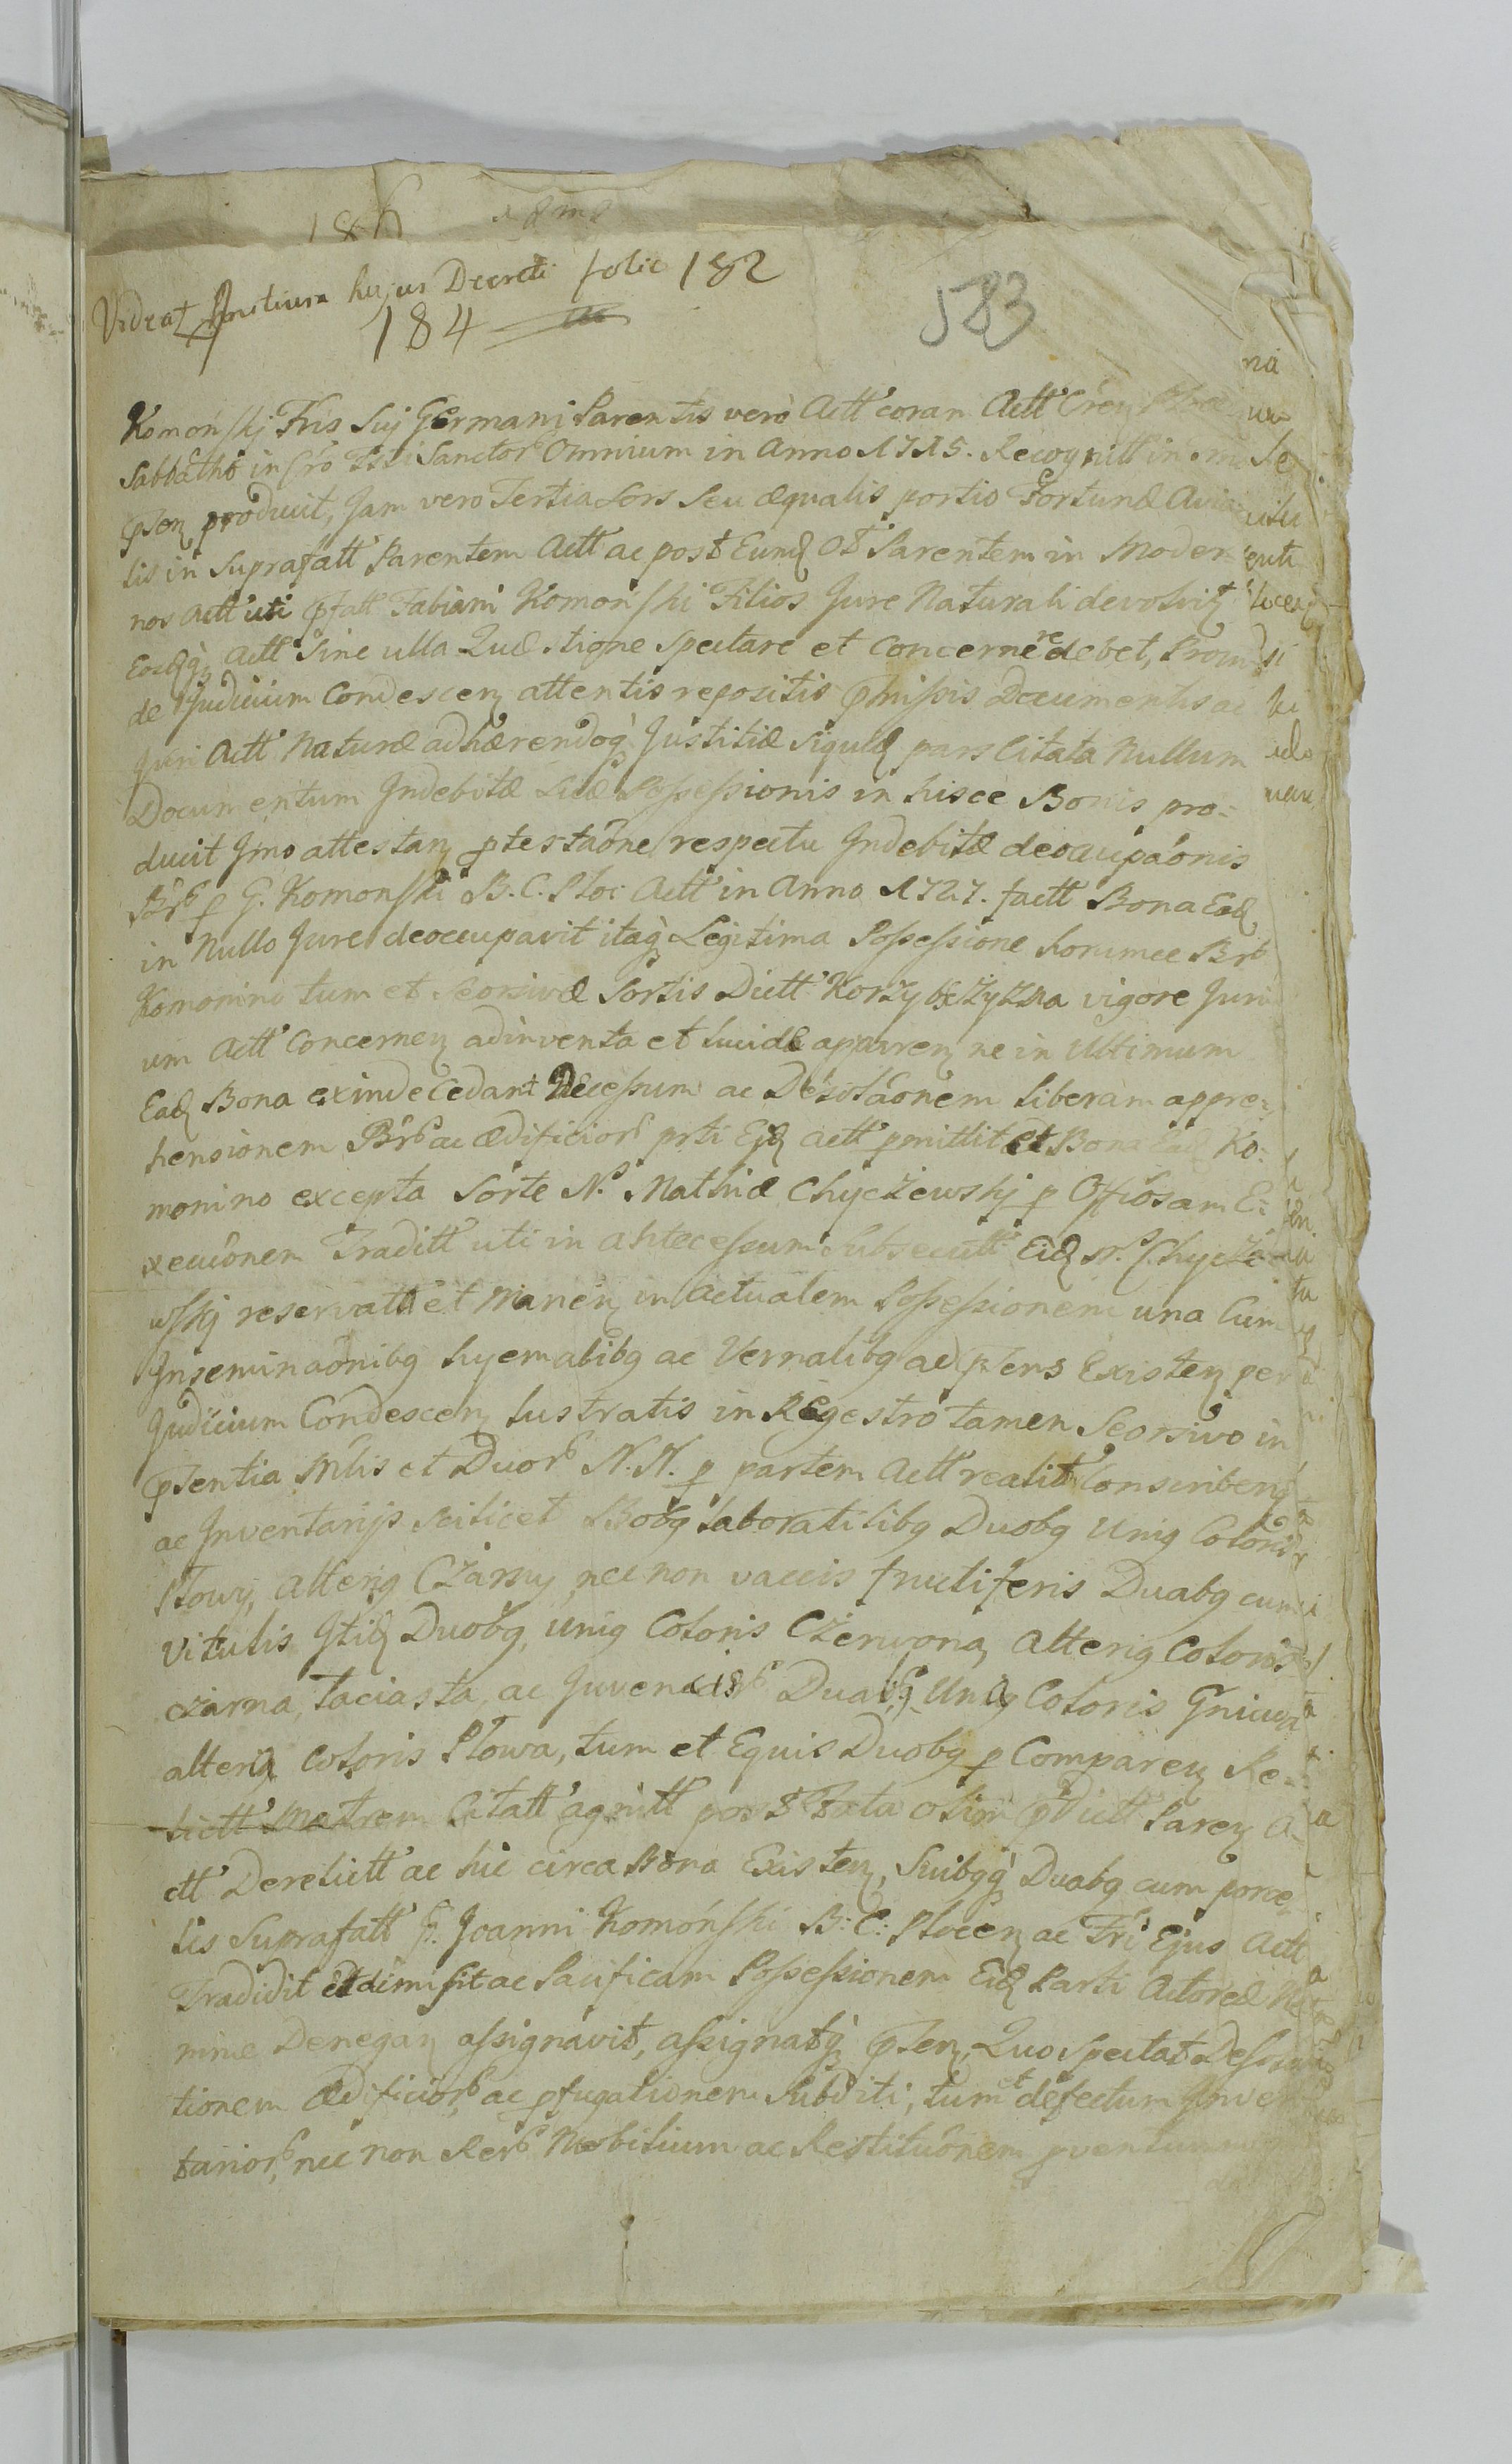 186
Videat Initium hujus Decreti folio 182
184
583
Komońskj Fris Suj Germanj Parentis verò Actt coram Actt
Sabbatho in Cro Ffti Sanctor Omnium in Anno 1715. Recognitt in
pñten produxit, Jam vero Tertia Sors Seu æqualis portio Fortunæ Avia
lis in Suprafatt Parentem Actt ac post Eund Ol Parentem in Moder
nos Actt uti pfatt Fabiani Komoński Filios Jure Naturali devolvit
Eosdqz Actt Sine ulla Quæstione Spectare et Concernere debet, Proin
de Judicium Condescen attentis repositis pmissis Documentis ac
Juri Actt Naturæ adhærendoq Justitiæ siquid pars Citata Nullum
Documentum Indebitæ Suæ Possessionis in hisce Bonis pro=
ducit Imo attestan ptestaõne respectu Indebitæ deocupaõnis
Bñr p G. Komonski B. C. Ploc Actt in Anno 1727. factt Bona Ead
in Nullo Jure deoccupavit itaq Legitima Possessione horumce Bñr
Komonino tum et Seorsivæ Sortis Dictt Korzybszyzna vigore Juri
um Actt Concernen adinventa et Lucide apparen ne in Ultimum
Ead Bona exinde Cedant Decessum ac Desolaõnem liberam appre=
hensionem Bñr ac ædificior prti Ejd Actt pmittit et Bona Ead Ko=
monino excepta Sorte N. Mathiæ Chyczewskj p Offiosam E=
xecuõnem Traditt uti in antecessum Subsecutt Eid N. Chycze
wskj reservatt et Manen in Actualem Possessionem una Cum
Inseminaõnibq hyemalibq ac Vernalibq ad pñtens Existen per
Judicium Condescen lustratis in Regestro tamen Seorsivo in
pñtentia Mlis et Duor N. N. p partem Actt realit Conscriben
ac Inventarijs scilicet Bobq laboratilibq Duobq Uniq Coloris
Płowy, alteriq Czarny, nec non vaccis fructiferis Duabq cum
Vitulis Itid Duobq, uniq Coloris Czerwona, alteriq Coloris
czarna, łaciasta, ac Juvencis Duabq Uniq Coloris Gniada
alteriq Coloris Płowa, tum et Equis Duobq p Comparen Re=
lictt Matrem Citatt agnitt post Fata olim pdictt Paren A=
ctt Derelictt ac hic circa Bona Existen, Suibqq Duabq cum porcel
lis Suprafatt G. Joanni Komoński B: C: Plocen ac Fri Ejus Actt
Tradidit et dimisit ac Pacificam Possessionem Eid Parti Actoreæ Ne
mine Denegan assignavit, assignatq pñten, Quo Spectat Desola
tionem Ædificior ac pfugationem Subditi, tum et defectum Inven
tarior, nec non Rer Mobilium ac Restituõnem